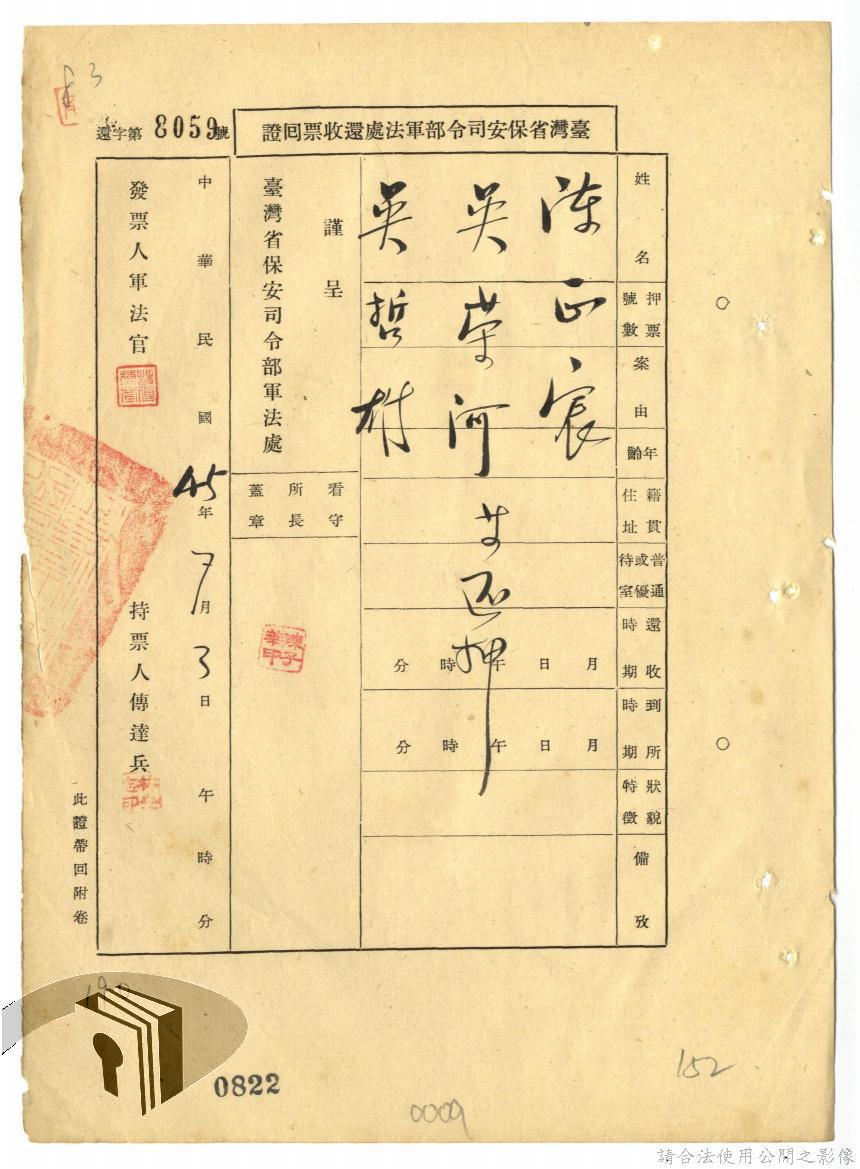 還字第8059號
臺灣省保安司令部軍法處還收票回證
姓名
押票號數
案由
年齡
籍貫住址
普通或優待室
還收時期
到所時期
狀貌特徵
備攷
陳正宸
吳榮河
吳哲雄
還押
月日午時分
月日午時分
謹呈
臺灣省保安司令部軍法處
看守所長蓋章
陳子華印
中華民國45年7月3日午時分
發票人軍法官
持票人傳達兵
此證帶回附卷
0822
0009
152
請合法使用公開之影像